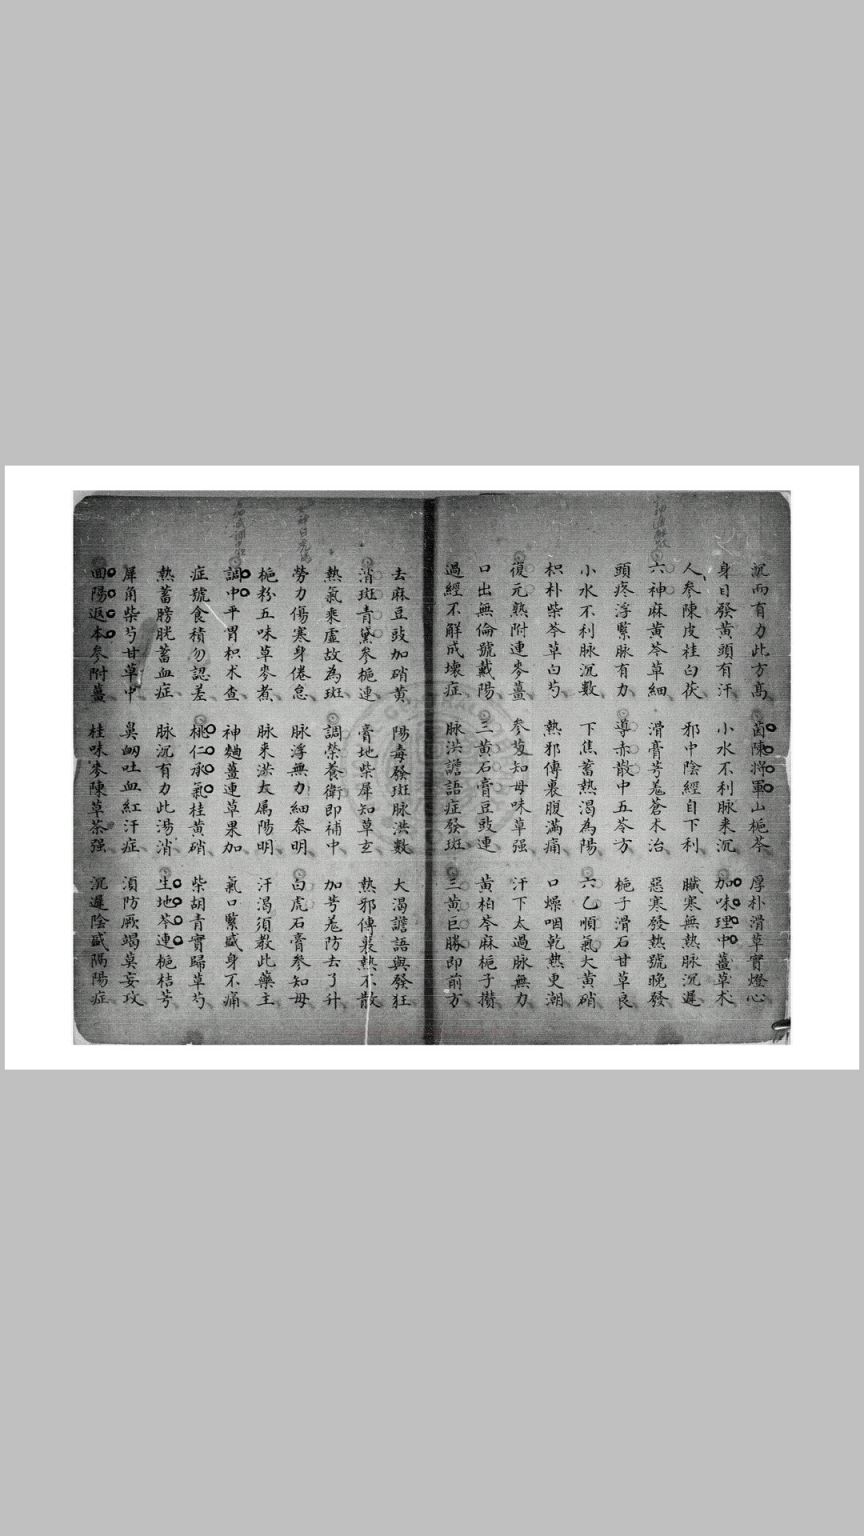 沉而有力此方高 茵陳將軍山梔芩 厚朴滑草實燈心
身目發黃頭有汗 小水不利脉来沉 加味理中薑草术
人參陳皮桂白茯 邪中陰經自下利 臟寒無熱脉沉遲
六神麻黃芩草細 滑膏芎羗蒼木治 惡寒發熱號晚發
頭疼浮緊脉有力 導赤散中五苓方 梔子滑石甘草良
小水不利脉沉數 下焦蓄熱渴為陽 六乙順氣大黃硝
枳朴柴芩草白芍 熱邪傳裏腹滿痛 口燥咽乾熱更潮
復元熟附連麥薑 參䓀知母味草强 汗下太過脉無力
口出無倫號戴陽 三黃石膏豆豉連 黃柏芩麻梔子攢
過經不解成壞症 脉洪譫語症發斑 三黃巨勝即前方
去麻豆豉加硝黃 陽毒發斑脉洪數 大渴譫語與發狂
消斑青黛參梔連 膏地柴犀知草玄 熱邪傳裏熱不散
熱氣乘虛故為斑 調榮養衛即補中 加芎羗防去了升
勞力傷寒身倦怠 脉浮無力細叅明 白虎石膏參知母
梔粉五味草麥煮 脉来洪大属陽明 汗渴須教此藥主
調中平胃枳术查 神麯薑連草果加 氣口緊盛身不痛
症號食積勿認差 桃仁承氣桂黃硝 柴胡青實歸草芍
熱蓄膀胱蓄血症 脉沉有力此湯消 生地芩連梔桔芎
犀角柴芍甘草中 鼻衂吐血紅汗症 須防厥竭莫妄攻
回陽返本參附薑 桂味麥陳草茶强 沉遲陰盛隔陽症